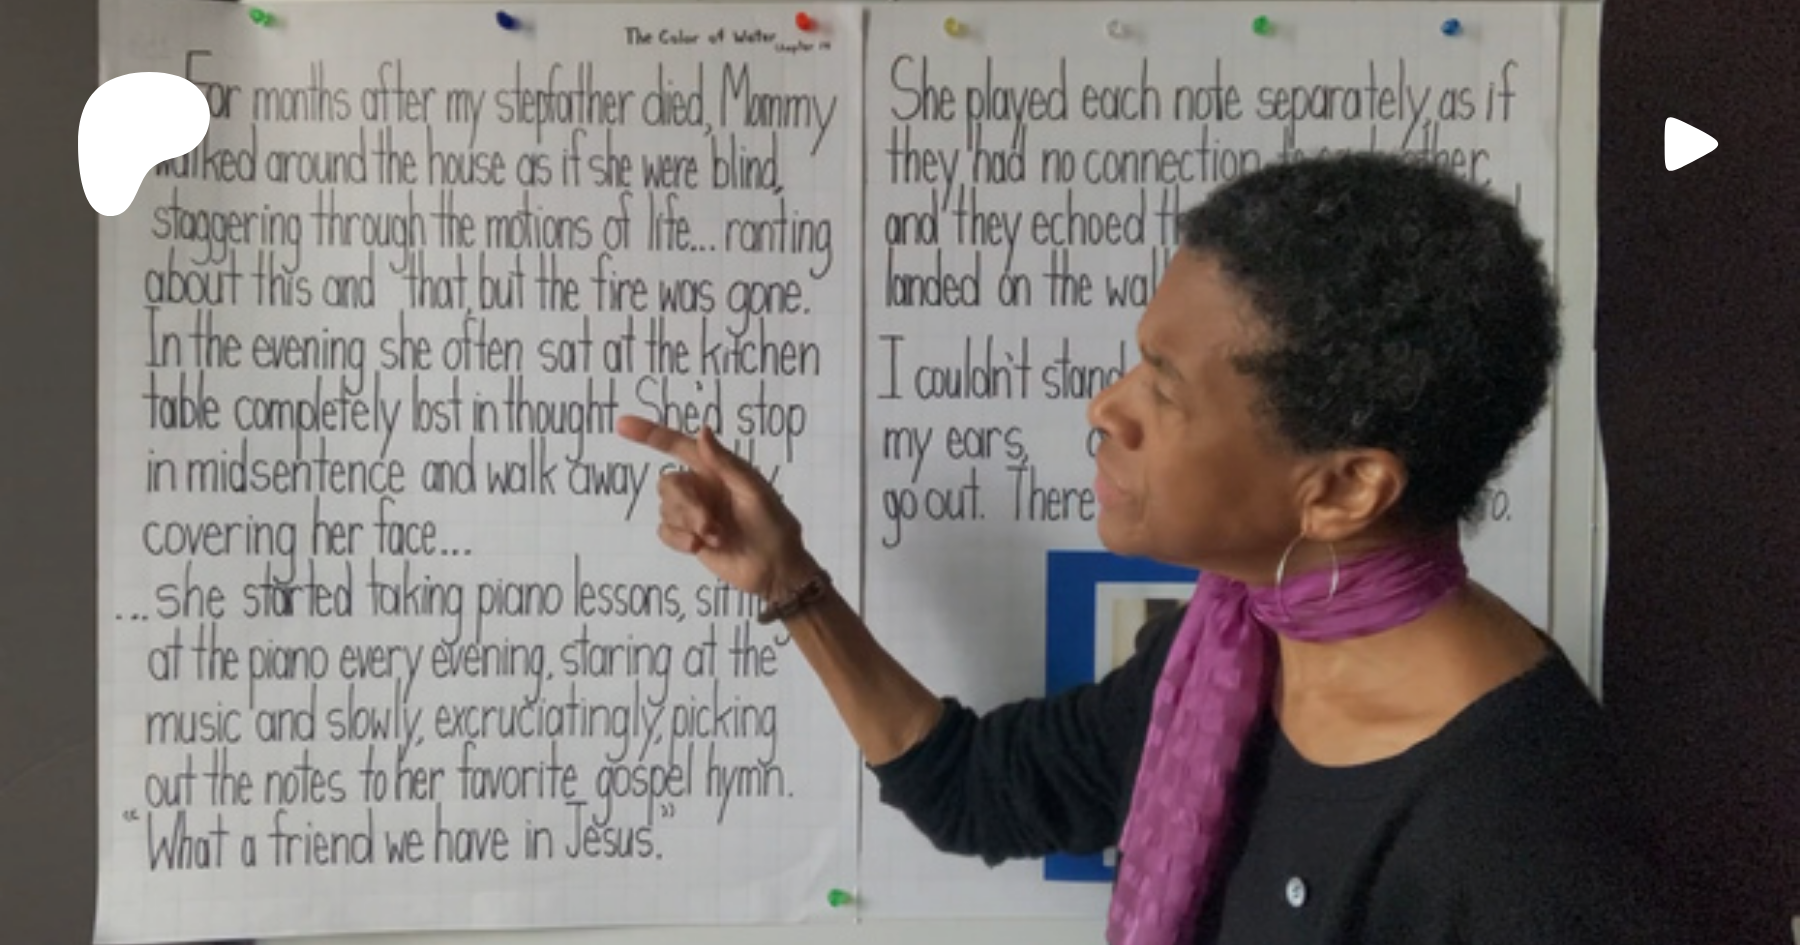 The Color of Water
Chapter 14
For months after my stepfather died, Mommy
walked around the house as if she were blind,
staggering through the motions of life... ranting
about this and that, but the fire was gone.
In the evening she often sat at the kitchen
table completely lost in thought. She'd stop
in midsentence and walk away
covering her face...
...she started taking piano lessons, sitting
at the piano every evening, staring at the
music and slowly, excruciatingly, picking
out the notes to her favorite gospel hymn.
"What a friend we have in Jesus."
She played each note separately, as if
they had no connection to each other,
and they echoed
landed on the wal
I couldn't stand
my ears,
go out. There